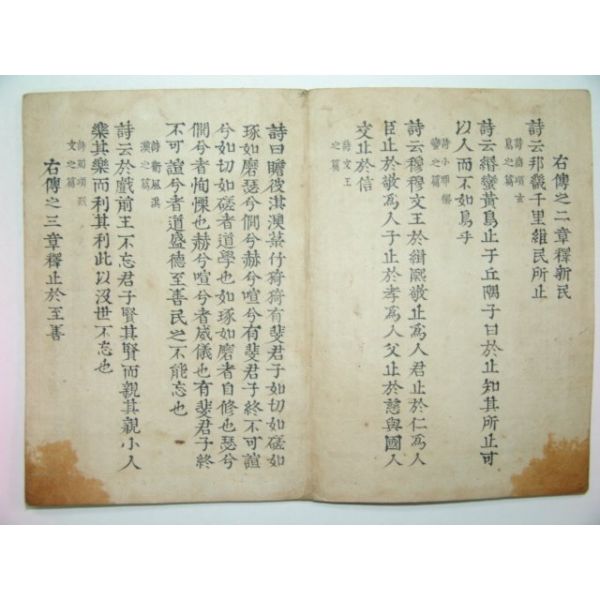 右傳之二章釋新民
詩云邦畿千里維民所止
詩商頌玄
鳥之篇
詩云緡蠻黃鳥止于丘隅子曰於止知其所止可
以人而不如鳥乎
詩小雅緡
蠻之篇
詩云穆穆文王於緝熙敬止爲人君止於仁爲人
臣止於敬爲人子止於孝爲人父止於慈與國人
交止於信
詩文王
之篇
詩曰瞻彼淇澳菉竹猗猗有斐君子如切如磋如
琢如磨瑟兮僩兮赫兮喧兮有斐君子終不可諠
兮如切如磋者道學也如琢如磨者自修也瑟兮
僩兮者恂慄也赫兮喧兮者威儀也有斐君子終
不可諠兮者道盛德至善民之不能忘也
詩衛風淇
澳之篇
詩云於戲前王不忘君子賢其賢而親其親小人
樂其樂而利其利此以沒世不忘也
詩周頌烈
文之篇
右傳之三章釋止於至善